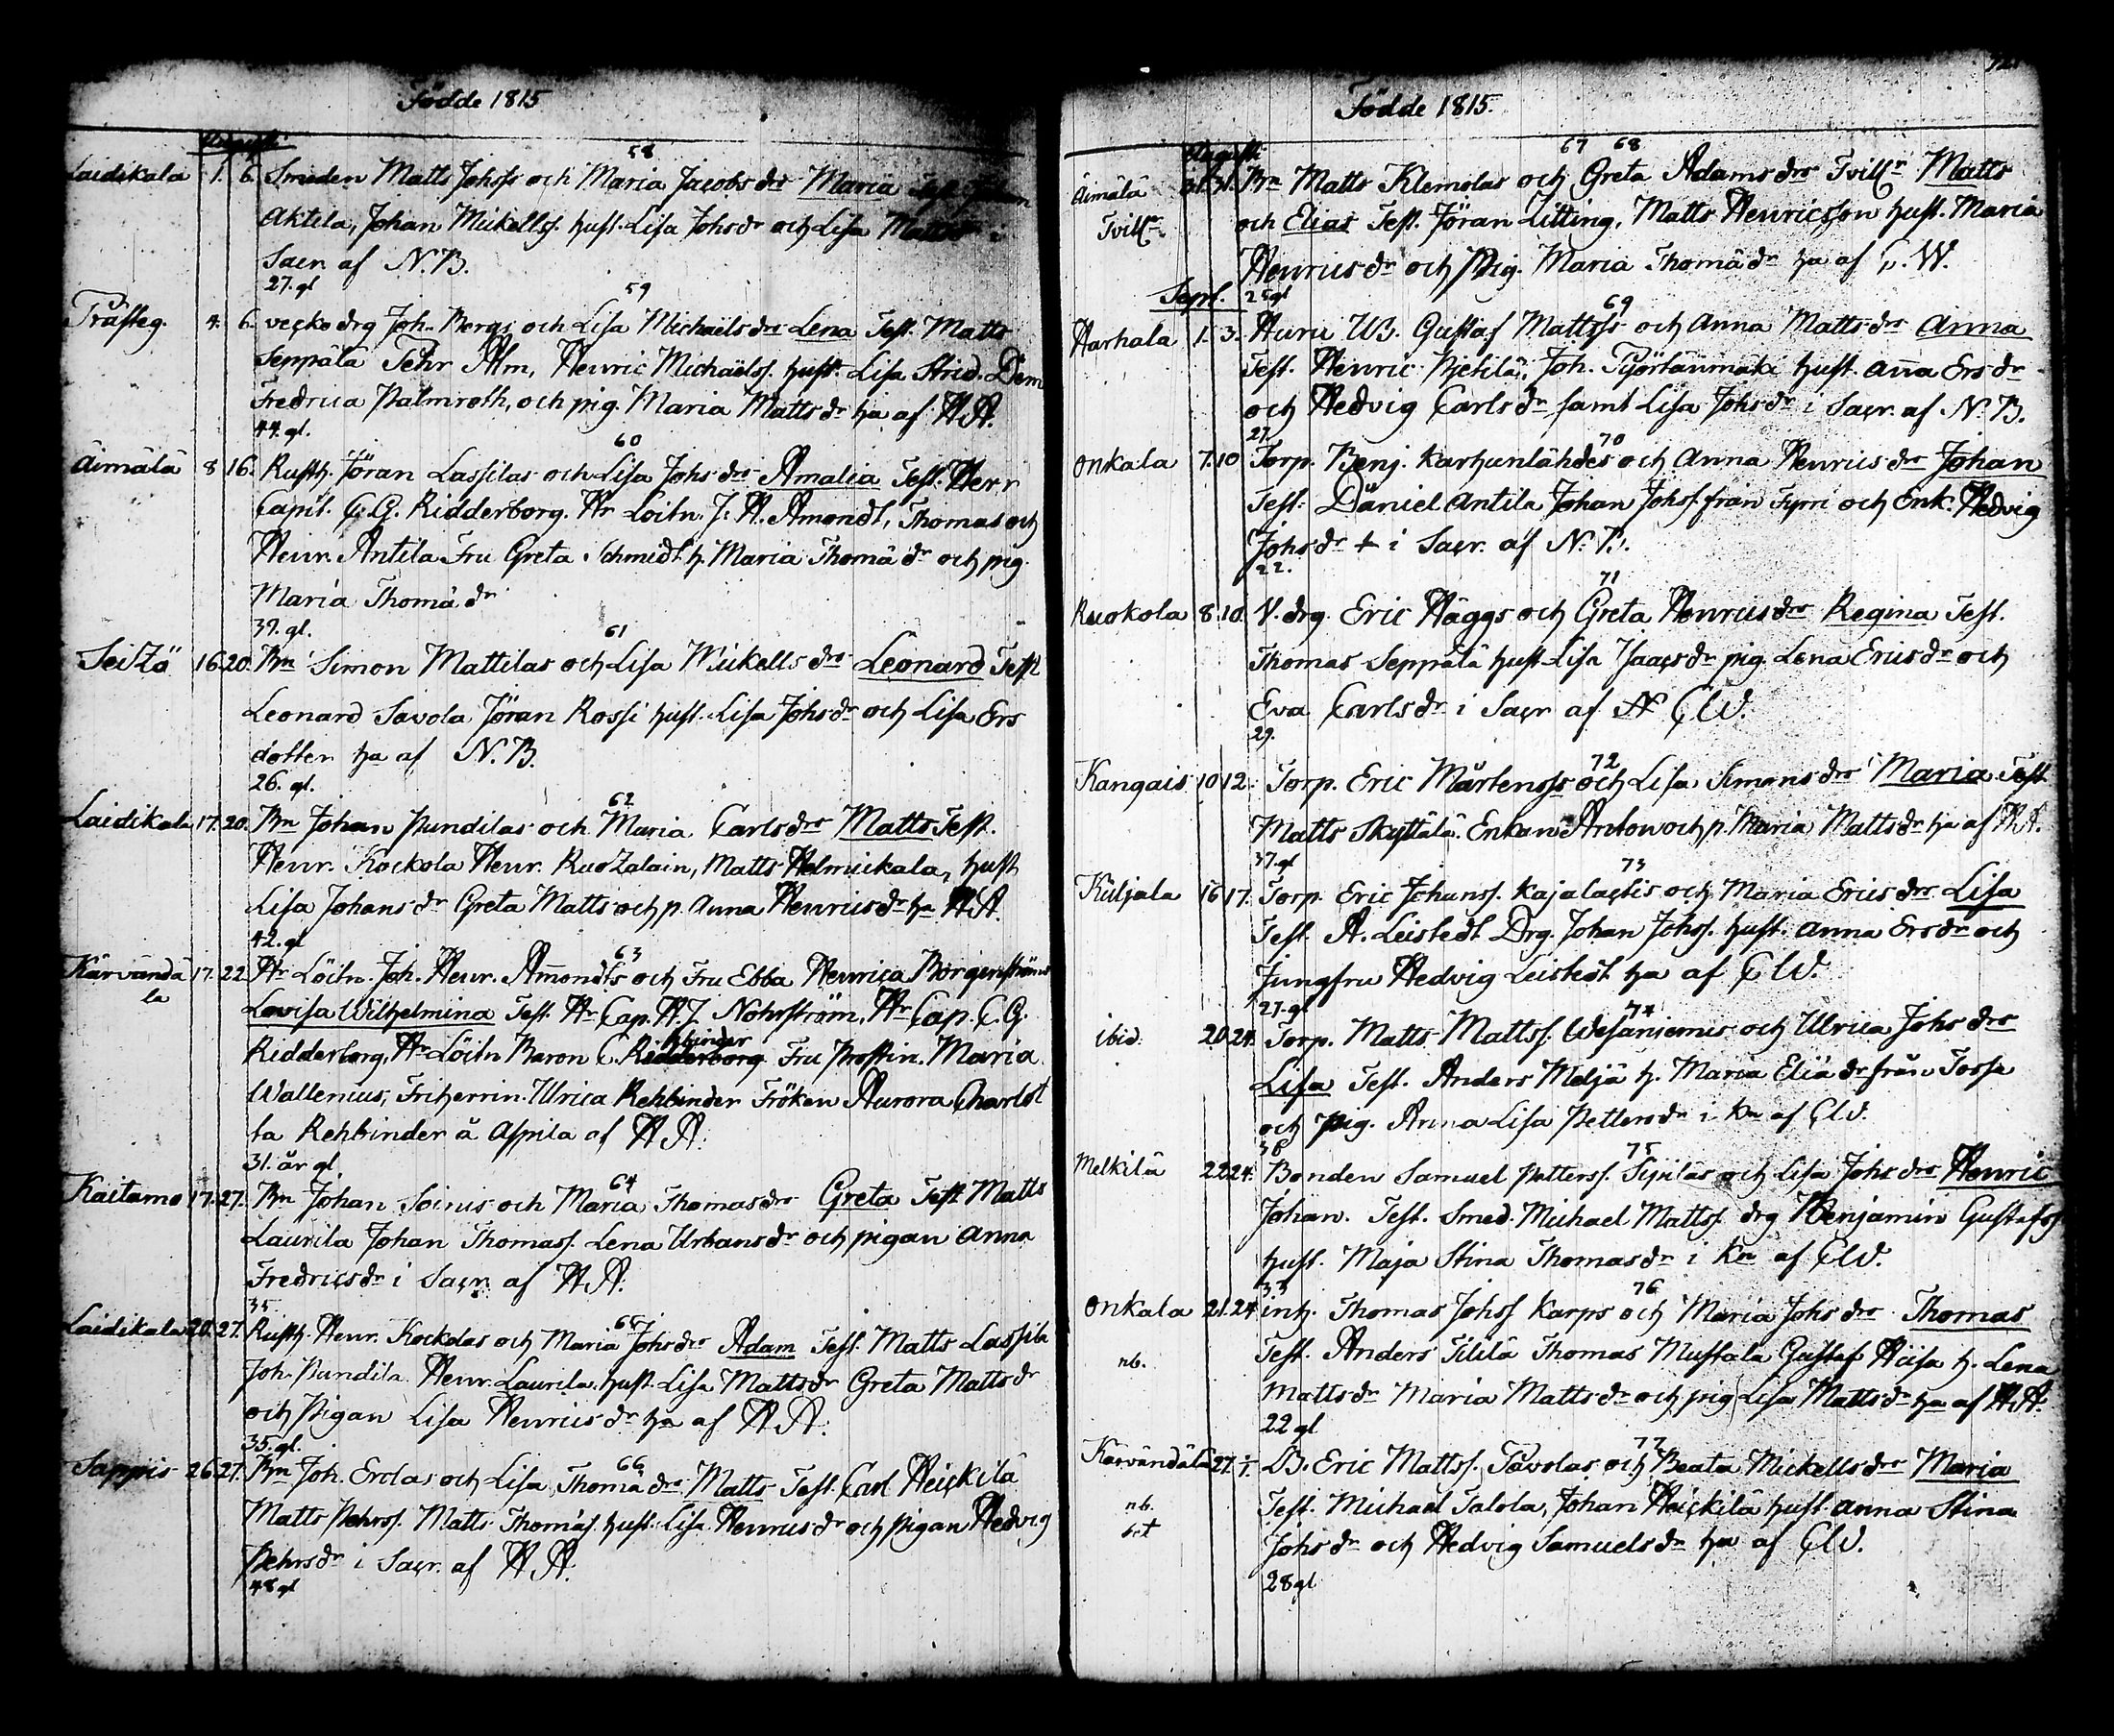 Födde 1815
Augusti
58
Laidikala 1. 6. Smeden Matts Johss och Maria Jacobs drs Maria Test.
Aktila, Johan Mickelss. hust. Lisa Johsdr och Lisa Matts
Sacr. af N.B.
27. gl
59
Prästeg. 4. 6. veçkodrg Joh. Bergs och Lisa Michaëls drs Lena Test. Matts
Seppälä Alm, Henric Michaëlss. hust. Lisa Strid. Dem
Fredrica Palmroth, och pig. Maria Matts dr ha af H.A.
44. gl.
60
Äimälä 8 16. Rusth. Jöran Lassilas och Lisa Johs drs Amalia Test. Herr
Capit. C.G. Ridderborg. Hr Loitn. J.H. Amondt, Thomas och
Henr. Antila Fru Greta Schmidt h. Maria Thomä dr och pig.
Maria Thomä dr
37. gl.
61
16 20. Bn Simon Mattilas och Lisa Mickells drs Leonard Test
Leonard Savola Jöran Rossi hust. Lisa Johsdr och Lisa Ers
dotter ha af N.B.
26. gl.
62
Laidikala 17. 20. Bn Johan Pundilas och Maria Carls drs Matts Test.
Henr. Kockola Henr. Matts hust
Lisa Johans dr Greta Matts och p. Anna Henrics dr ha H.A.
42. gl
63
Kärvändä 17. 22. Hr Löitn. Joh. Henr. Amondts och Fru Ebba Henrica Borgenströms
la
Lovisa Wilhelmina Test. Hr Cap. H.J. Nohrström, Hr Cap. C.G.
hbinder
Ridderborg, Hr Löitn Baron C. Ridderborg Fru Prostin. Maria
Wallenius, Friherrin. Ulrica Rehbinder Fröken Aurora Charlot
ta Rehbinder å Aspila af H.A.
31. år gl
64
Kaitamo 17. 27. Bn Johan Soinis och Maria Thomas drs Greta Test Matts
Laurila Johan Thomass. Lena Urbans dr och pigan Anna
Fredricsdr i Sacr. af H.A.
35.
65
Laidikala 20. 27. Rusth. Henr. Kockolas och Maria Johs drs Adam Test. Matts Lassila
Joh. Pundila Henr. Laurila hust. Lisa Matts dr Greta Matts dr
och Pigan Lisa Henrics dr ha af H.A.
35. gl.
66
Sappis 26. 27. Bn Joh. Erolas och Lisa Thomä drs Matts Test. Carl Heickilä
Matts Pehrss. Matts Thomäs. hust. Lisa Henrics dr och pigan Hedvig
Pehrsdr i Sacr. af H.A.
48 gl
Födde 1815.
Augusti
67 68
Äimälä 31. Bn Matts Klemolas och Greta Adams drs Tvill:r Matts
Tvill:r och Elias Test. Jöran Litting, Matts Henricsson hust. Maria
Henrics dr och Pig. Maria Thomä dr ha af C.W.
Sept. 25 gl
69
Harhala 1. 3. Huru UB. Gustaf Mattss och Anna Matts drs Anna
Test. Henric Joh. hust. Anna Ersdr
och Hedvig Carlsdr samt Lisa Johsdr i Sacr. af N.B.
27
70
Onkala 7. 10 Torp. Benj. Karhunlähdes och Anna Henrics drs Johan
Test. Daniel Antila Johan Johss. från och Enk. Hedvig
Johs dr i Sacr. af N.B.
22.
71
Ruokola 8. 10. V. drg. Eric Häggs och Greta Henrics drs Regina Test.
Thomas Seppälä hust Lisa Isaacs dr pig. Lena Erics dr och
Eva Carlsdr i Sacr af CW.
29.
72
Kangais 10 12. Torp. Eric Mårtenss och Lisa Simons drs Maria Test
Matts Skyttälä Enkan Anton och p. Maria Matts dr ha af H.A.
37. gl
73
Kuljala 16 17. Torp. Eric Johanss. Kajalactis och Maria Erics drs Lisa
Test. A. Leistedt Drg. Johan Johss. hust. Anna Ersdr och
Jungfru Hedvig Leistedt ha af CW.
27. gl
74
ibid. 20 24. Torp. Matts Mattss. Wesaniemis och Ulrica Johs drs
Lisa Test. Anders Meljä h. Maria Eliä dr från
och pig. Anna Lisa Petters dr i Kn af CW.
36
75
Melkilä 22 24. Bonden Samuel Petterss. Sipilas och Lisa Johs drs Henric
Johan. Test. Smed. Michael Mattss. drg Benjamin Gustafss
hust. Maja Stina Thomas dr i Kn af CW.
33
76
Onkala 21. 24 inh. Thomas Johss Karps och Maria Johs drs Thomas
nb. Test. Anders Tililä Thomas Mustala Gustaf h. Lena
Matts dr Maria Matts dr och pig Lisa Matts dr ha af H.A.
22 gl
77
Kärvändälä 27. 1/. B. Eric Mattss. Pavolas och Beata Mickells drs Maria
nb. Test. Michael Talola, Johan Heickilä hust. Anna Stina
Johs dr och Hedvig Samuels dr ha af CW.
28 gl